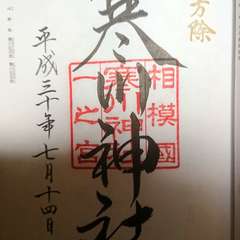 方除
寒川神社
相模國
一之宮
平成三十年七月十四日